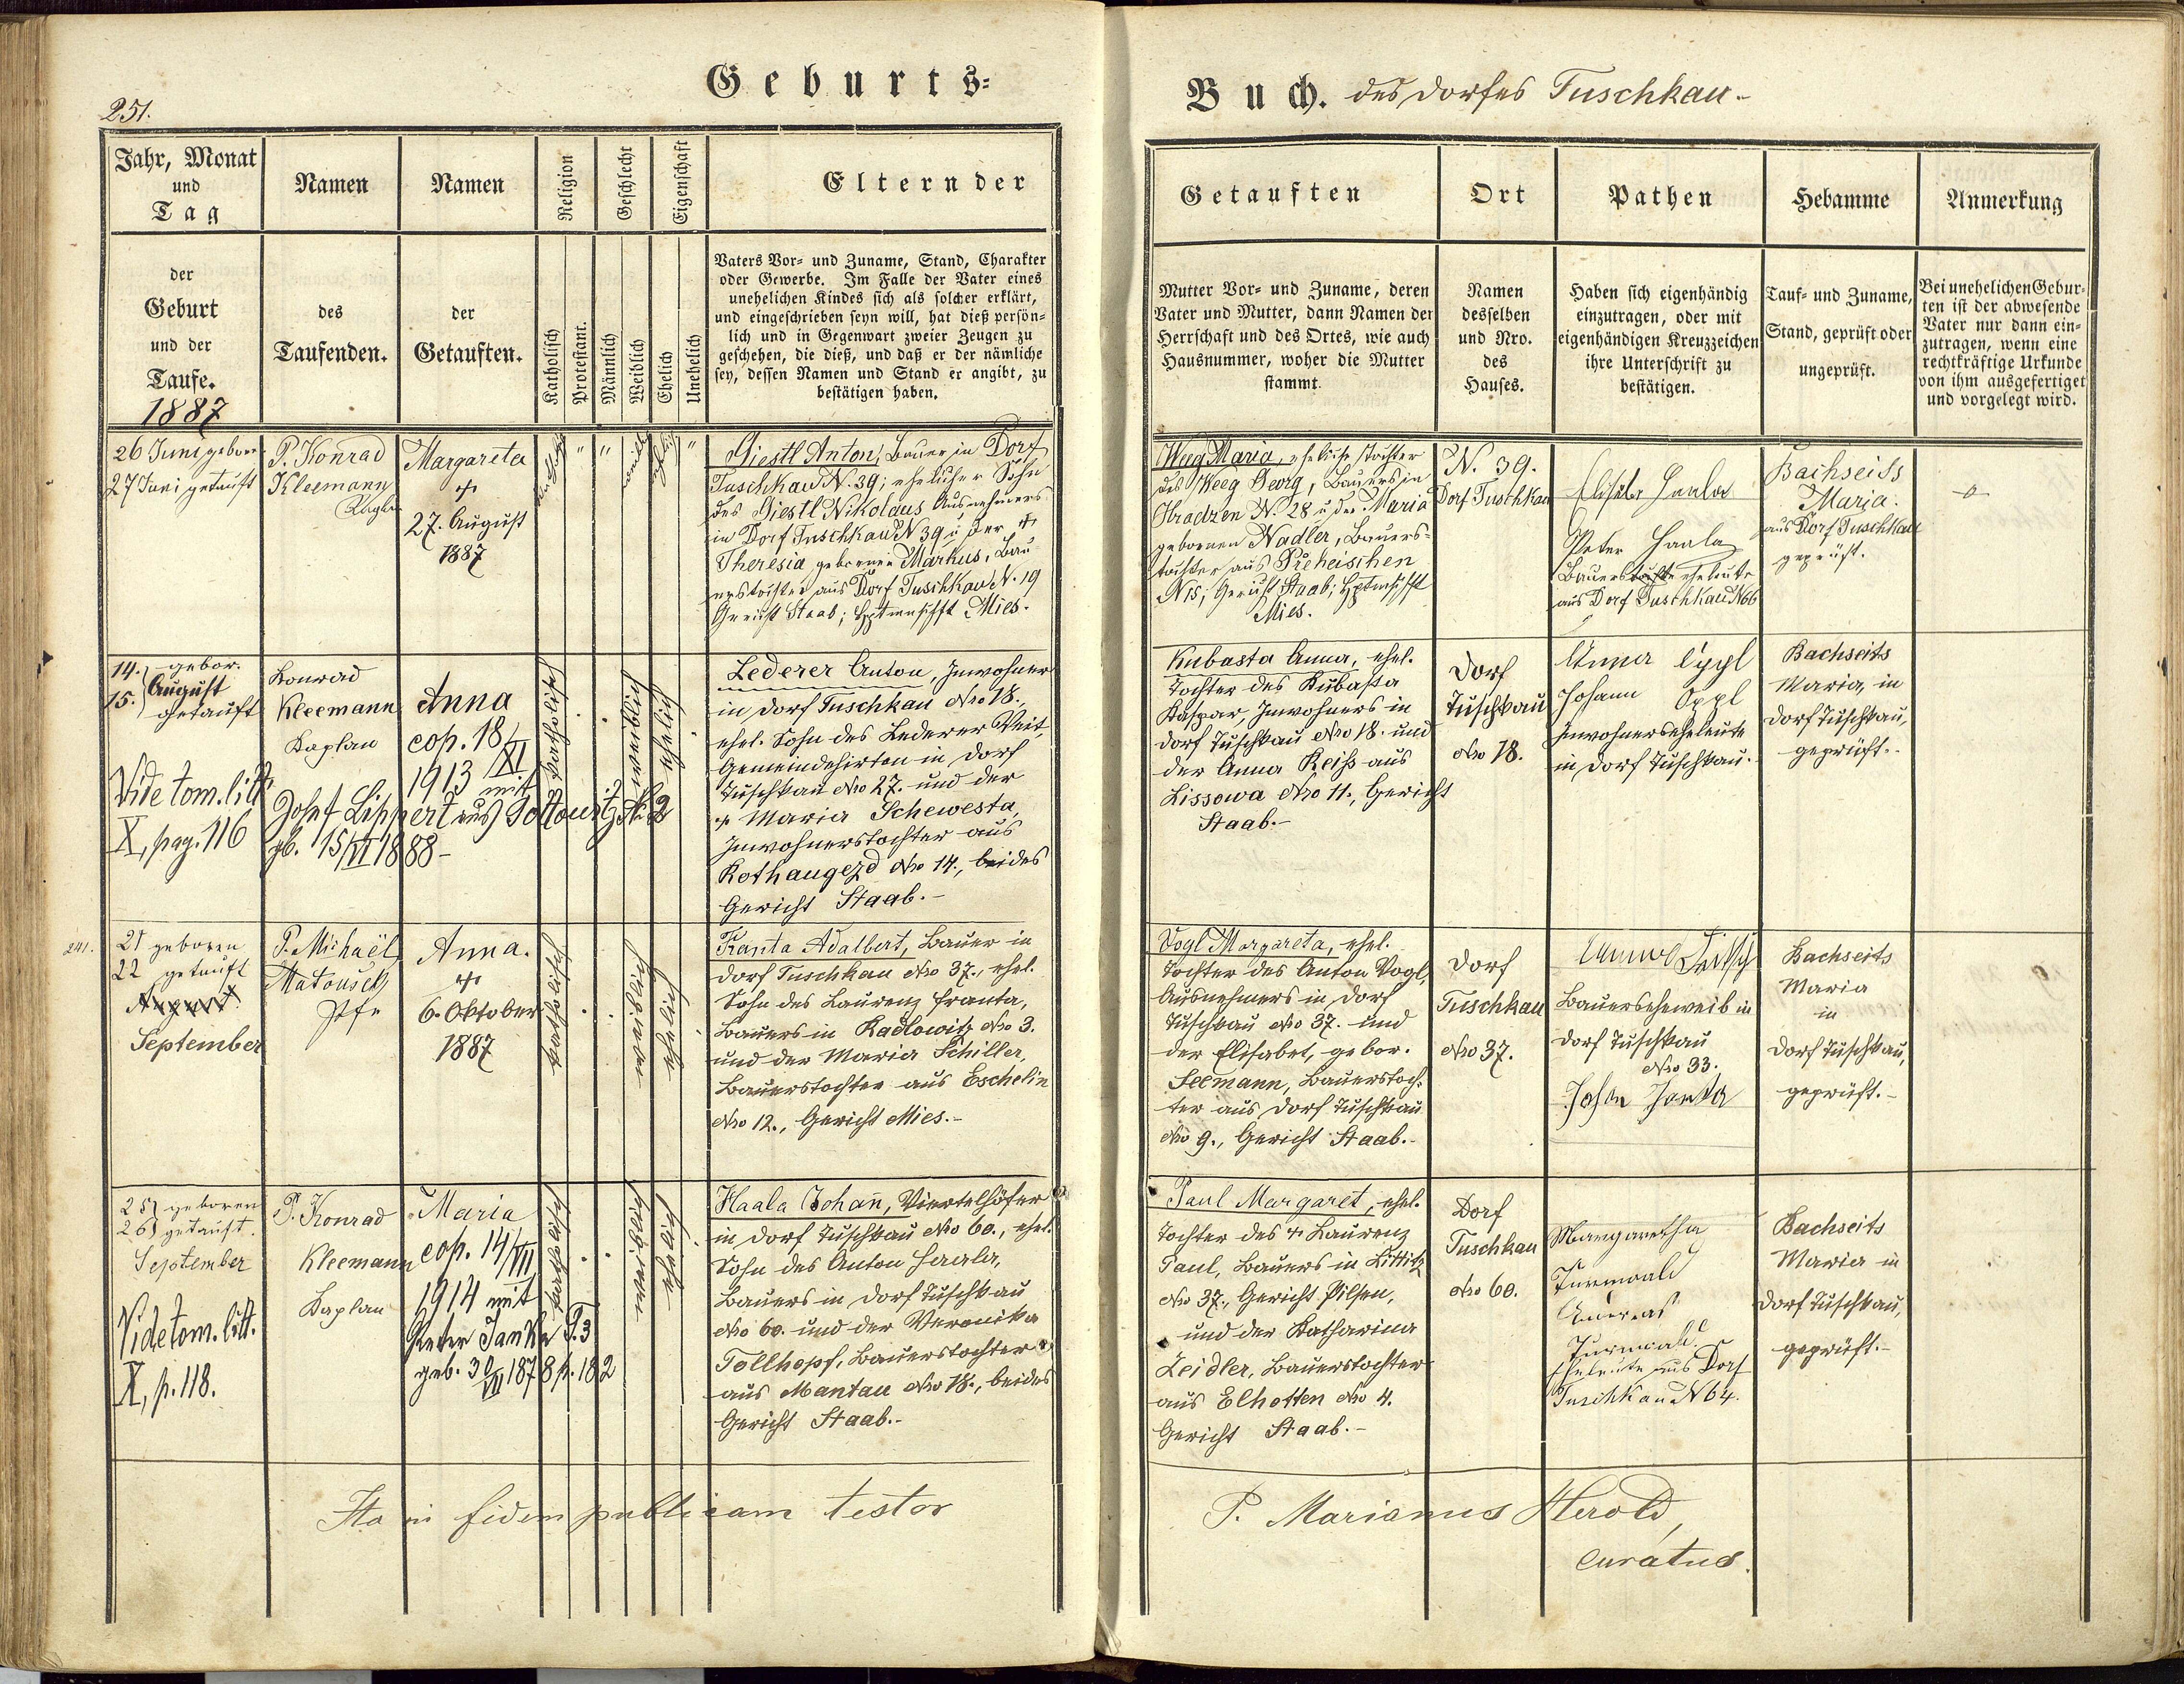 Geburts=
251.
Jahr, Monat
und
Tag
der
Geburt
und der
Taufe.
1887
Namen
des
Taufenden.
Namen
der
Getauften.
Religion
Katholisch
Protestant.
Geschlecht
Männlich
Weiblich
Eigenschaft
Ehelich
Unehelich
Eltern der
Vaters Vor= und Zuname, Stand, Charakter
oder Gewerbe. Im Falle der Vater eines
unehelichen Kindes sich als solcher erklärt,
und eingeschrieben seyn will, hat dieß persön=
lich und in Gegenwart zweier Zeugen zu
geschehen, die dieß, und daß er der nämliche
sey, dessen Namen und Stand er angibt, zu
bestätigen haben.
26 Juni geboren
27 Juni getauft
P. Konrad
Kleemann
Kaplan
Margareta
†
27. August
1887
katholisch
"
"
weiblich
ehelich
"
Giestl Anton, Bauer in Dorf
Tuschkau N. 39; ehelicher Sohn
des Giestl Nikolaus Ausnehmers
in Dorf Tuschkau N 39 u der †
Theresia geborenen Markus, Bau
erstochter aus Dorf Tuschkau N. 19
Gericht Staab; Hptmschft Mies.
14. gebor.
August
15. getauft
Vide tom. litt.
X, pag. 116
Konrad
Kleemann
Kaplan
Anna
cop. 18/XI
1913 mit
Josef Lippert aus Tottowitz N. 2
gb. 15/VI 1888-
katholisch
weiblich
ehelich
Lederer Anton, Inwohner
in Dorf Tuschkau Nro 18.,
ehel. Sohn des Lederer Veit,
Gemeindehirten in Dorf
Tuschkau Nro 27. und der
† Maria Schewesta,
Inwohnerstochter aus
Rothaugezd Nro 14., beides
Gericht Staab.-
241.
21 geboren
22 getauft
August
September
P. Michaël
Matousek
Pfr
Anna.
†
6. Oktober
1887
katholisch
weiblich
ehelich
Franta Adalbert, Bauer in
Dorf Tuschkau Nro 37., ehel.
Sohn des Laurenz Franta,
Bauers in Radlowitz Nro 3.
und der Maria Schiller,
Bauerstochter aus Eschelin
Nro 12., Gericht Mies.-
25 geboren
26 getauft.
September
Vide tom. litt.
X, p. 118.
P. Konrad
Kleemann
Kaplan
Maria
cop. 14/VII
1914 mit
Peter Janka T.3
geb. 30/VII 1878 p. 182
katholisch
weiblich
ehelich
Haala Johañ, Viertelhöfer
in Dorf Tuschkau Nro 60., ehel.
Sohn des Anton Haala,
Bauers in Dorf Tuschkau
Nro 60. und der Veronika
Tollhopf, Bauerstochter
aus Mantau Nro 18., beides
Gericht Staab.-
Ita in fidem publicam testor
Buch. des Dorfes Tuschkau-
Getauften
Mutter Vor= und Zuname, deren
Vater und Mutter, dann Namen der
Herrschaft und des Ortes, wie auch
Hausnummer, woher die Mutter
stammt.
Ort
Namen
desselben
und Nro.
des
Hauses.
Pathen
Haben sich eigenhändig
einzutragen, oder mit
eigenhändigen Kreuzzeichen
ihre Unterschrift zu
bestätigen.
Hebamme
Tauf= und Zuname,
Stand, geprüft oder
ungeprüft.
Anmerkung
Bei unehelichen Gebur=
ten ist der abwesende
Vater nur dann ein=
zutragen, wenn eine
rechtkräftige Urkunde
von ihm ausgefertiget
und vorgelegt wird.
Weeg Maria, eheliche Tochter
des Weeg Georg, Bauers in
Hradzen N. 28 u der Maria
geborenen Nadler, Bauers=
tochter aus Preheischen
N 15; Gericht Staab; Hptmschft
Mies.
N. 39.
Dorf Tuschkau
Elisabet Haala
Peter Haala
Bauerseheleute
aus Dorf Tuschkau N 66
Bachseits
Maria.
aus Dorf Tuschkau
geprüft.
-o-
Kubasta Anna, ehel.
Tochter des Kubasta
Kaspar, Inwohners in
Dorf Tuschkau Nro 18. und
der Anna Reiss aus
Lissowa Nro 11., Gericht
Staab.-
Dorf
Tuschkau
Nro 18.
Anna Oppl
Johann Oppl
Inwohnerseheleute
in Dorf Tuschkau.
Bachseits
Maria, in
Dorf Tuschkau,
geprüft.-
Vogl Margareta, ehel.
Tochter des Anton Vogl,
Ausnehmers in Dorf
Tuschkau Nro 37. und
der Elisabet, gebor.
Seemann, Bauerstoch=
ter aus Dorf Tuschkau
Nro 9., Gericht Staab.-
Dorf
Tuschkau
Nro 37.
Anna
Bauerseheweib in
Dorf Tuschkau
Nro 33.
Bachseits
Maria
in
Dorf Tuschkau,
geprüft.-
Paul Margaret, ehel.
Tochter des † Laurenz
Paul, Bauers in Littitz
Nro 37., Gericht Pilsen,
und der Katharina
Zeidler, Bauerstochter
aus Elhotten Nro 4.
Gericht Staab.-
Dorf
Tuschkau
Nro 60.
Margaretha
Turnwald
Andreas
Turnwald
Eheleute aus Dorf
Tuschkau N 64.
Bachseits
Maria in
Dorf Tuschkau,
geprüft.-
P. Marianus Herold,
curatus.